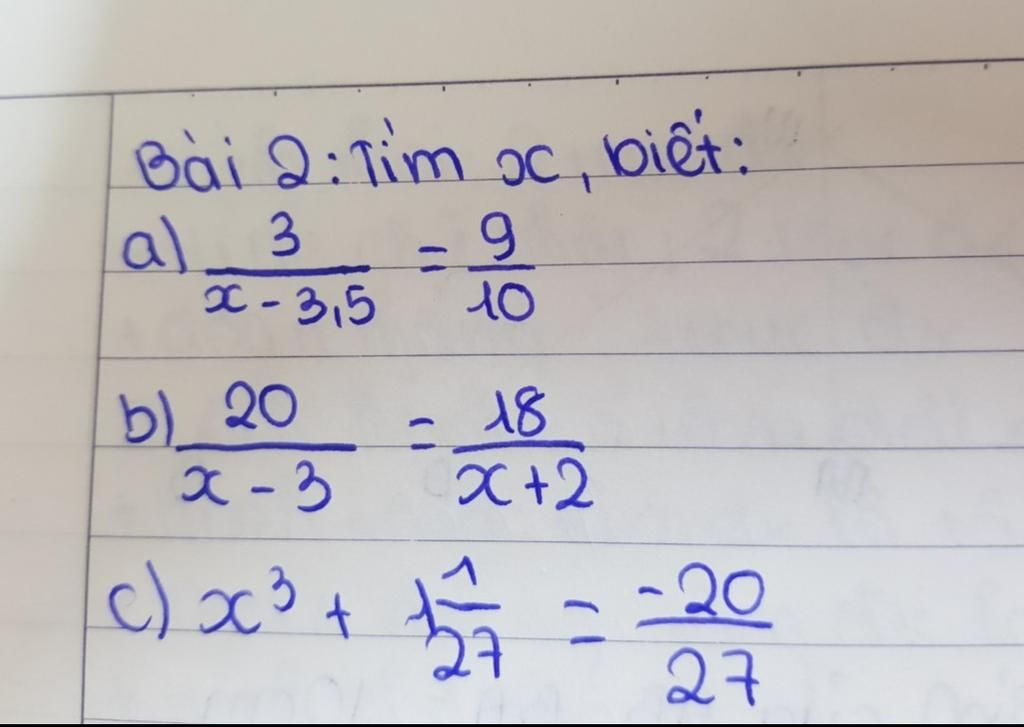 Bài 2: Tìm x, biết:
a) 3/(x - 3,5) = 9/10
b) 20/(x - 3) = 18/(x + 2)
c) x³ + 1 1/27 = -20/27